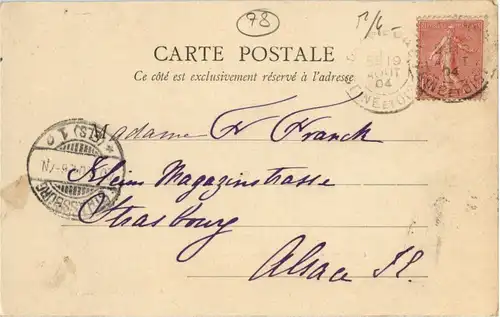 78
CARTE POSTALE
Ce côté est exclusivement réservé à l'adresse
19
AOUT
04
Madame Fr Franck
Kleine Magazinstrasse
Strasbourg
Alsace